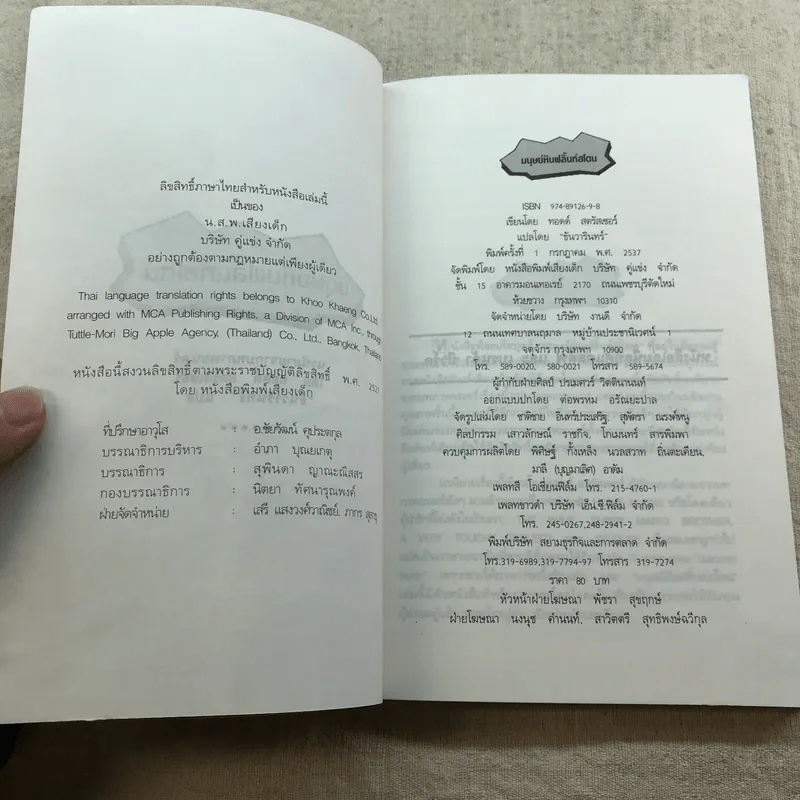 ลิขสิทธิ์ภาษาไทยสำหรับหนังสือเล่มนี้
เป็นของ
น.ส.พ.เสียงเด็ก
บริษัท คู่แข่ง จำกัด
อย่างถูกต้องตามกฎหมายแต่เพียงผู้เดียว
Thai language translation rights belongs to Khoo Khaeng Co.,Ltd.
arranged with MCA Publishing Rights, a Division of MCA Inc., through
Tuttle-Mori Big Apple Agency, (Thailand) Co., Ltd., Bangkok, Thailand
หนังสือนี้สงวนลิขสิทธิ์ตามพระราชบัญญัติลิขสิทธิ์ พ.ศ. 2521
โดย หนังสือพิมพ์เสียงเด็ก
ที่ปรึกษาอาวุโส : อ.ชัยวัฒน์ คุประตกุล
บรรณาธิการบริหาร : อำภา บุณยเกตุ
บรรณาธิการ : สุพินดา ญาณะณิสสร
กองบรรณาธิการ : นิตยา ทัศนารุณพงค์
ฝ่ายจัดจำหน่าย : เสรี แสงวงศ์วาณิชย์, ภากร
มนุษย์หินฟลิ้นท์สโตน
ISBN 974-89126-9-8
เขียนโดย ทอดด์ สตรัสเซอร์
แปลโดย "ธันวารินทร์"
พิมพ์ครั้งที่ 1 กรกฎาคม พ.ศ. 2537
จัดพิมพ์โดย หนังสือพิมพ์เสียงเด็ก บริษัท คู่แข่ง จำกัด
ชั้น 15 อาคารมอนเทอเรย์ 2170 ถนนเพชรบุรีตัดใหม่
ห้วยขวาง กรุงเทพฯ 10310
จัดจำหน่ายโดย บริษัท งานดี จำกัด
12 ถนนเทศบาลนฤมาล หมู่บ้านประชานิเวศน์ 1
จตุจักร กรุงเทพฯ 10900
โทร. 589-0020, 580-0021 โทรสาร 589-5674
ผู้กำกับฝ่ายศิลป์ ปรเมศวร์ วิตตินานนท์
ออกแบบปกโดย ต่อพรหม อรัณยะปาล
จัดรูปเล่มโดย ชาติชาย อินทร์ประเสริฐ, สุพัตรา ณรงค์หนู
ศิลปกรรม เสาวลักษณ์ ราชกิจ, โกเมนทร์ สารพิมพา
ควบคุมการผลิตโดย พิศิษฐ์ กั้งเหลิง นวลสวาท ถิ่นตะเคียน,
มาลี (บุญมาเลิศ) อาดัม
เพลทสี โอเชี่ยนฟิล์ม โทร. 215-4760-1
เพลทขาวดำ บริษัท เอ็น.ซี.ฟิล์ม จำกัด
โทร. 245-0267,248-2941-2
พิมพ์บริษัท สยามธุรกิจและการตลาด จำกัด
โทร.319-6989,319-7794-97 โทรสาร 319-7274
ราคา 80 บาท
หัวหน้าฝ่ายโฆษณา พัชรา สุขฤกษ์
ฝ่ายโฆษณา นงนุช คำนนท์, สาวิตตรี สุทธิพงษ์ฉวีกุล